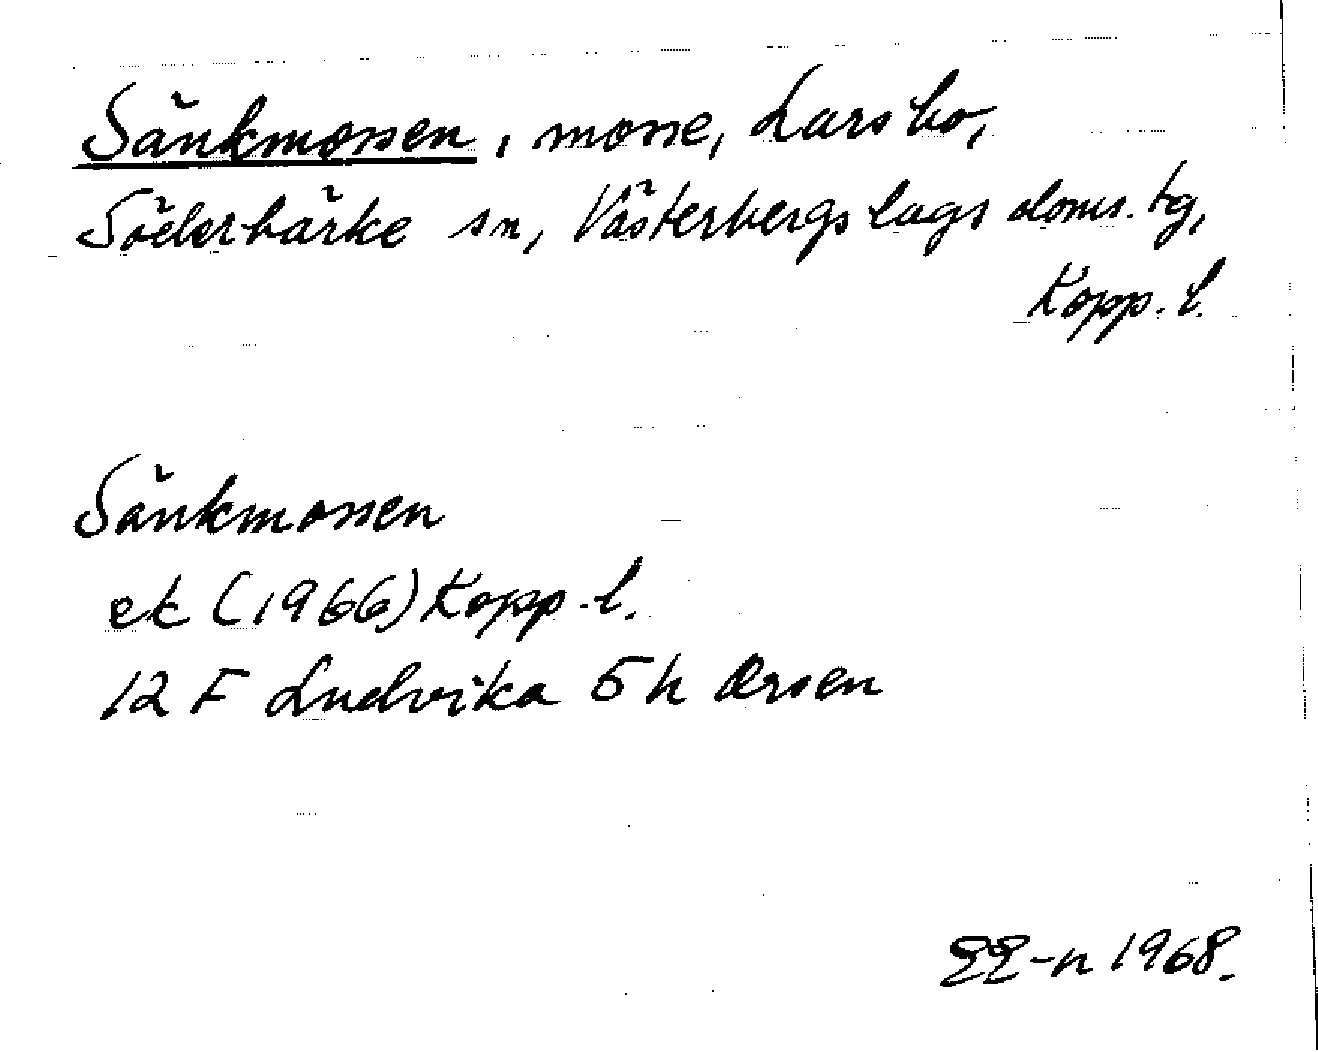 Sänkmossen, mosse, Larsbo,
Söderbärke sn, Västerbergslags doms. tg,
Kopp. l.
Sänkmossen
ek (1966) Kopp. l.
12 F Ludvika 5 h Orsen
EE-n 1968.